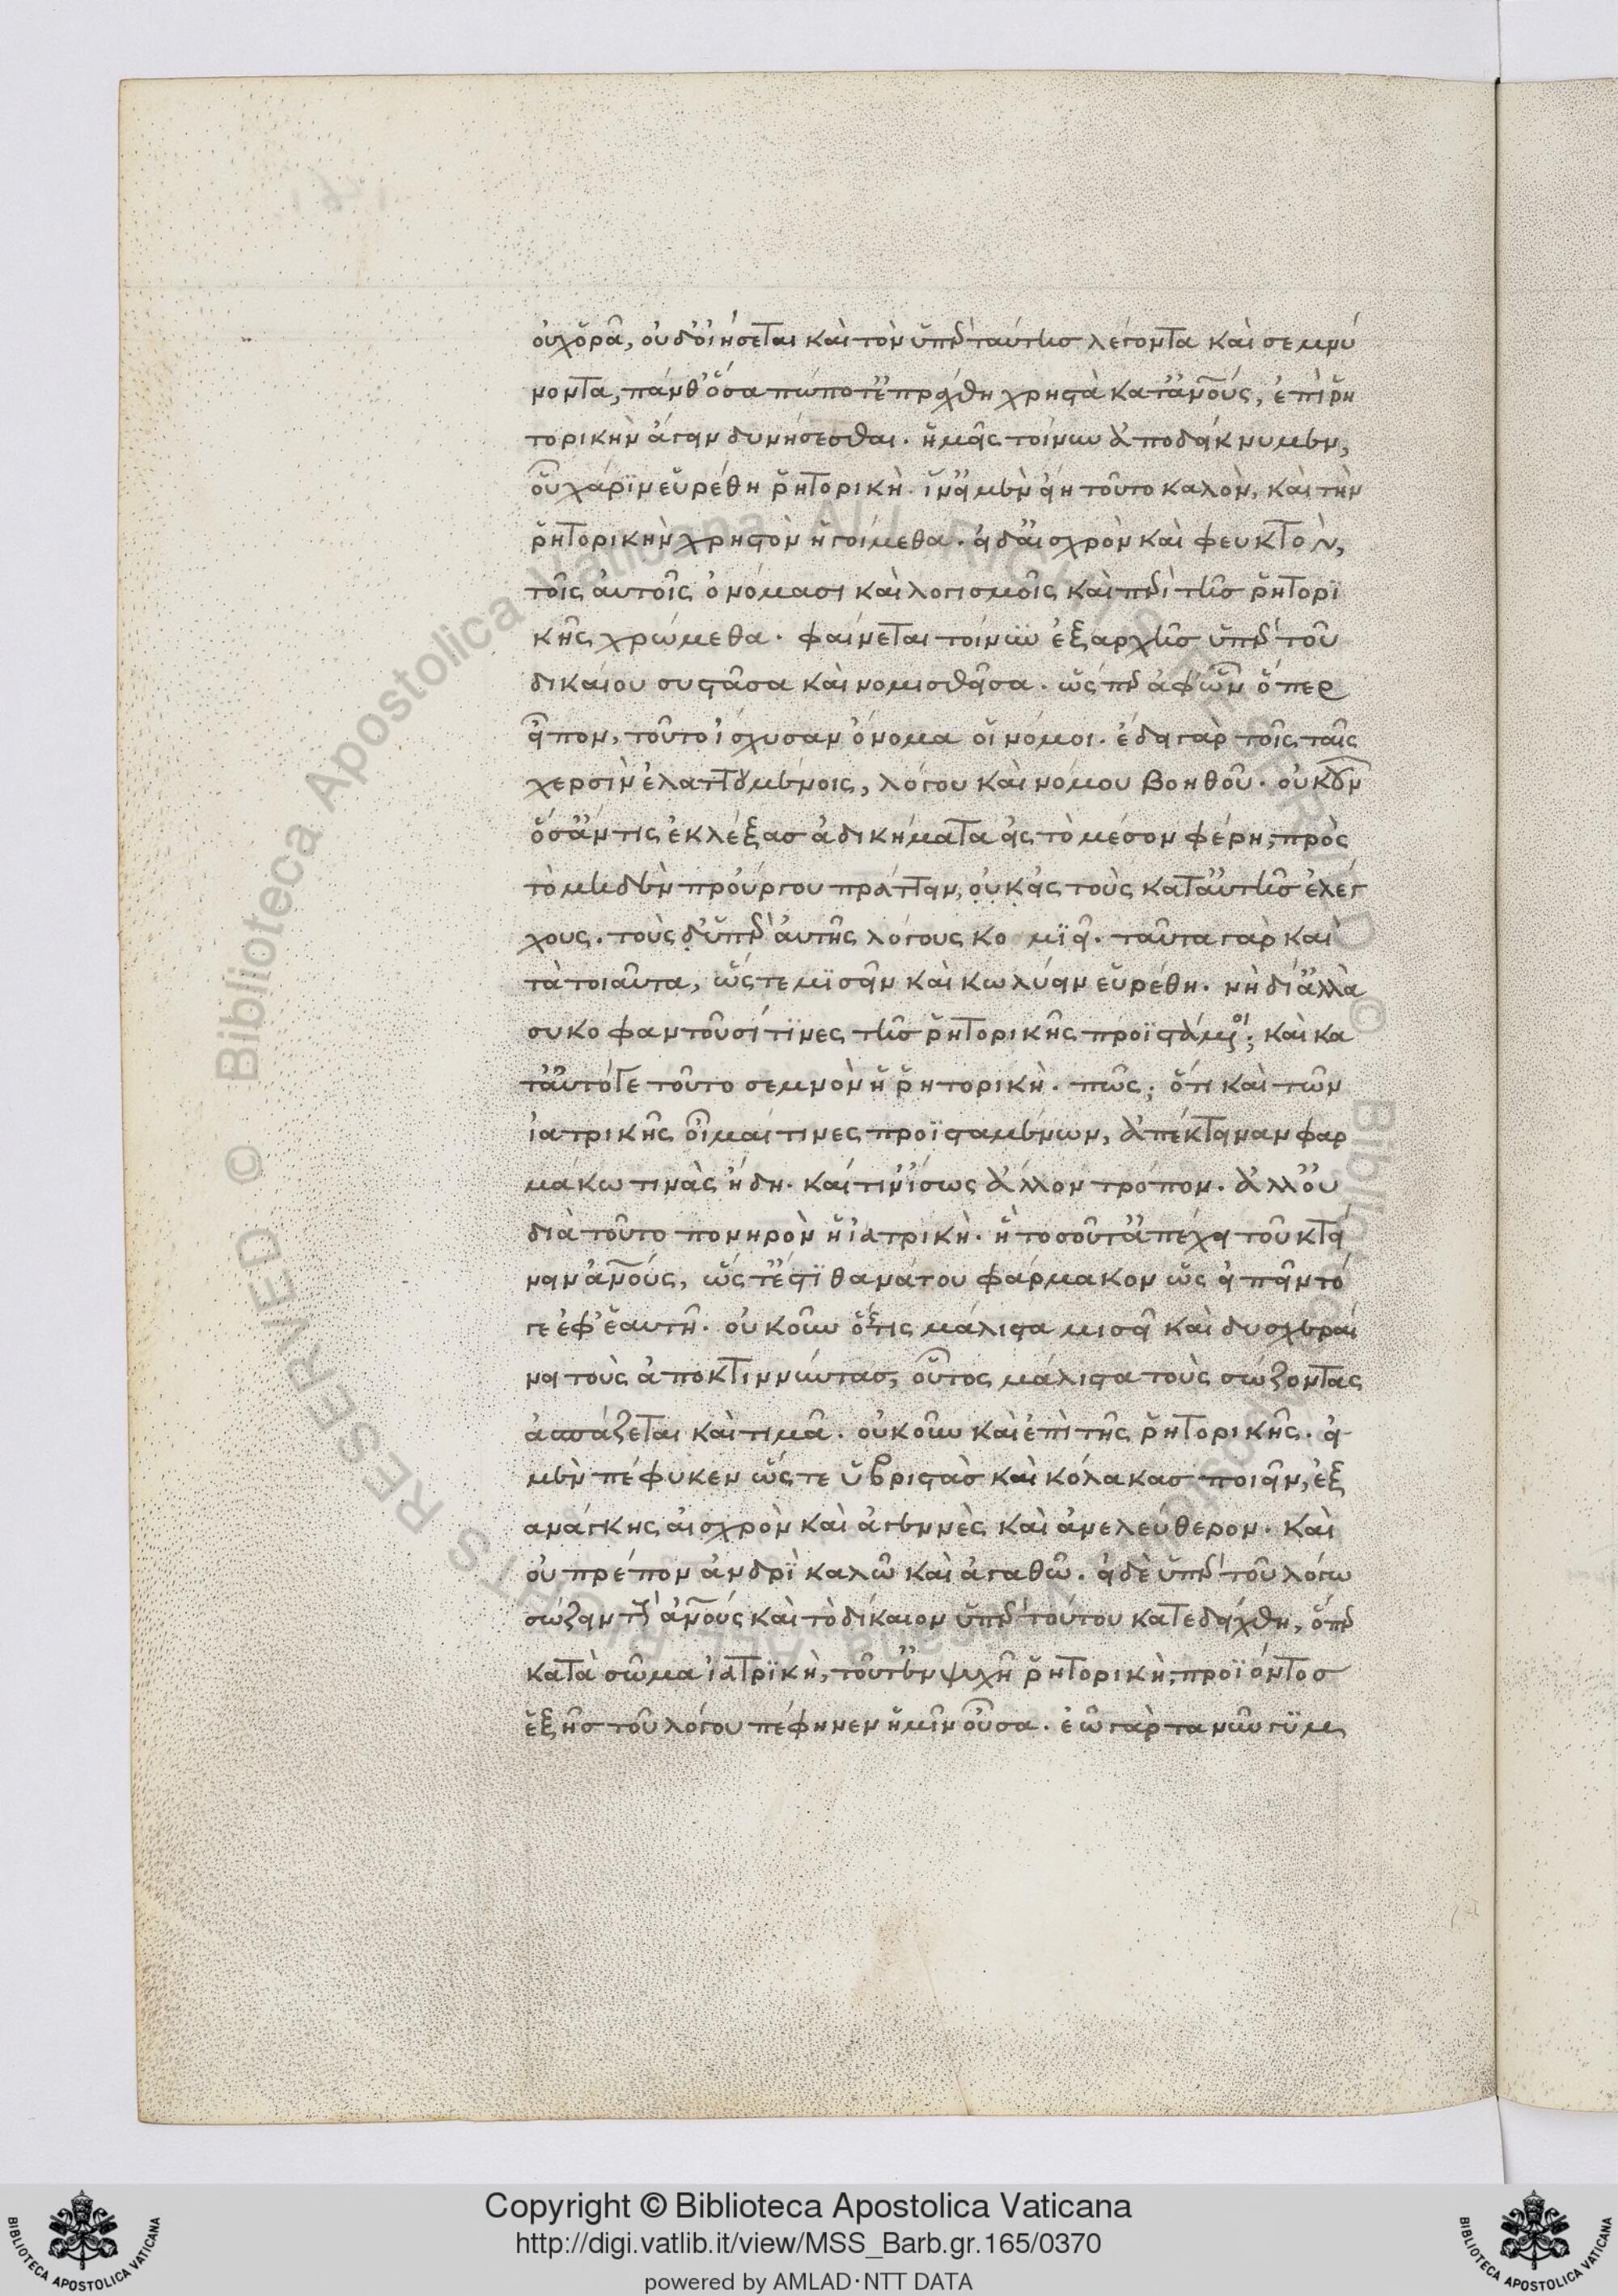 οὐχ ὁρᾷ, οὐδ' οἰήσεται καὶ τὸν ὑπὲρ ταύτης λέγοντα καὶ σεμνύ
νοντα, πάνθ' ὅσα πώποτ' ἐπράχθη χρηστὰ κατ' ἀν̅ους, ἐπὶ ῥη
τορικὴν ἄγειν δυνήσεσθαι. ἡμᾶς τοίνυν ἀποδείκνυμεν,
οὗ χάριν εὑρέθη ῥητορικὴ. ἵν' εἰ μὲν εἴη τοῦτο καλὸν, καὶ τὴν
ῥητορικὴν χρηστὸν ἡγοίμεθα. εἰ δ' αἰσχρὸν καὶ φευκτὸν,
τοῖς αὐτοῖς ὀνόμασι καὶ λογισμοῖς καὶ περὶ τῆς ῥητορι
κῆς χρώμεθα. φαίνεται τοίνυν ἐξαρχῆς ὑπὲρ τοῦ
δικαίου συστᾶσα καὶ νομισθεῖσα. ὥσπερ ἀφ' ὧν ὅπερ
εἶπον, τοῦτο ἴσχυσαν ὄνομα οἱ νόμοι. ἔδει γὰρ τοῖς ταῖς
χερσὶν ἐλαττουμένοις, λόγου καὶ νόμου βοηθοῦ. οὐκοῦν
ὅσ' ἄν τις ἐκλέξας ἀδικήματα εἰς τὸ μέσον φέρη, πρὸς
τὸ μηδὲν προύργου πράττειν, οὐκ εἰς τοὺς κατ' αὐτῆς ἐλέγ
χους. τοὺς δ' ὑπὲρ αὐτῆς λόγους κομιεῖ. ταῦτα γὰρ καὶ
τὰ τοιαῦτα, ὥστε μισεῖν καὶ κωλύειν εὑρέθη. νὴ δί' ἀλλὰ
συκοφαντοῦσί τινες τῆς ῥητορικῆς προϊστάμενοι; καὶ κα
τ' αὐτό γε τοῦτο σεμνὸν ἡ ῥητορικὴ. πῶς; ὅτι καὶ τῶν
ἰατρικῆς οἶμαί τινες προϊσταμένων, ἀπέκτειναν φαρ
μάκω τινὰς ἤδη. καί τιν' ἴσως ἄλλον τρόπον. ἀλλ' οὐ
διὰ τοῦτο πονηρὸν ἡ ἰατρικὴ. ἣ τοσοῦτ' ἀπέχει τοῦ κτεί
νειν ἀν̅ους, ὥστ' ἐστὶ θανάτου φάρμακον ὡς εἰπεῖν τό
γε ἐφ' ἑαυτῆ. οὐκοῦν ὅστις μάλιστα μισεῖ καὶ δυσχεραί
νει τοὺς ἀποκτιννύντας, οὗτος μάλιστα τοὺς σώζοντας
ἀσπάζεται καὶ τιμᾶ. οὐκοῦν καὶ ἐπὶ τῆς ῥητορικῆς. εἰ
μὲν πέφυκεν ὥστε ὑβριστὰς καὶ κόλακας ποιεῖν, ἐξ
ανάγκης αἰσχρὸν καὶ ἀγεννὲς καὶ ἀνελεύθερον. καὶ
οὐ πρέπον ἀνδρὶ καλῶ καὶ ἀγαθῶ. εἰ δὲ ὑπὲρ τοῦ λόγω
σώζειν τοὺς ἀν̅ους καὶ τὸ δίκαιον ὑπὲρ τούτου κατεδείχθη, ὅπερ
κατὰ σῶμα ἰατρικὴ, τοῦτ' ἐν ψυχῆ ῥητορικὴ, προϊόντος
ἑξῆς τοῦ λόγου πέφηνεν ἡμῖν οὖσα. ἐῶ γὰρ τανῦν γυμ